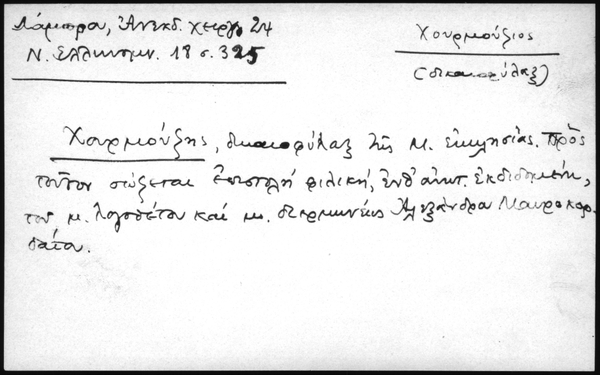 Λάμπρου, Ἀνεκδ. χειργ. 24
Ν. Ἑλληνομν. 18 σ. 325
Χουρμούζιος
(δικαιοφύλαξ)
Χουρμούζης, δικαιοφύλαξ τῆς Μ. ἐκκλησίας. Πρὸς
τοῦτον σώζεται ἐπιστολὴ φιλική, ἐνθ' ἀνωτ. ἐκδιδομένη,
τοῦ μ. λογοθέτου καὶ μ. διερμηνέως Ἀλεξάνδρου Μαυροκορ-
δάτου.